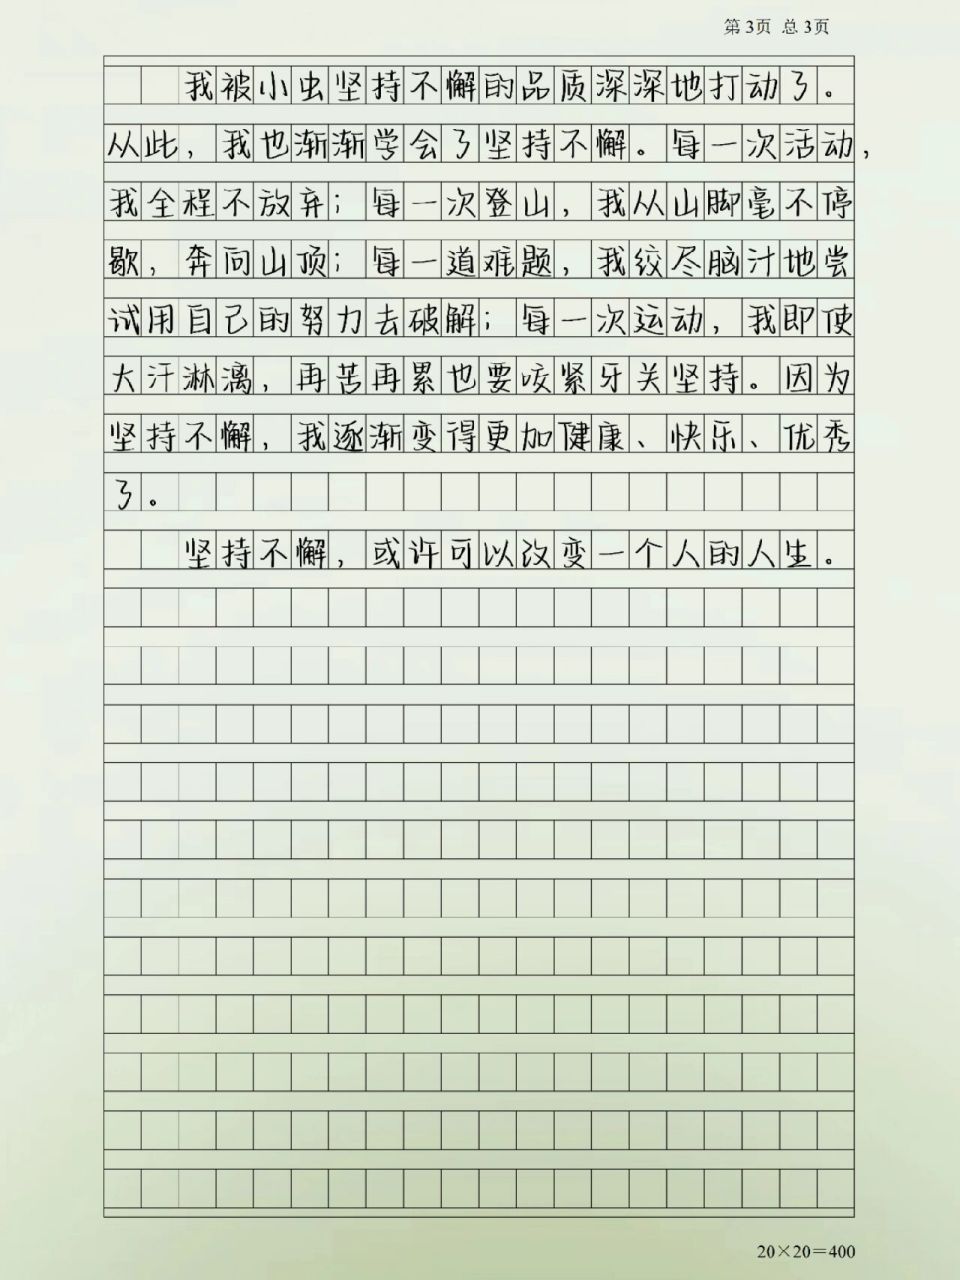 第3页 总3页
我被小虫坚持不懈的品质深深地打动了。
从此，我也渐渐学会了坚持不懈。每一次活动，
我全程不放弃；每一次登山，我从山脚毫不停
歇，奔向山顶；每一道难题，我绞尽脑汁地尝
试用自己的努力去破解；每一次运动，我即使
大汗淋漓，再苦再累也要咬紧牙关坚持。因为
坚持不懈，我逐渐变得更加健康、快乐、优秀
了。
坚持不懈，或许可以改变一个人的人生。
20×20＝400